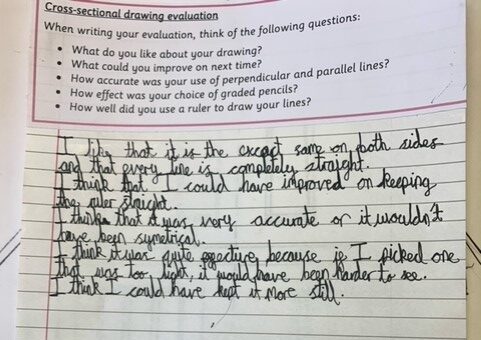 Cross-sectional drawing evaluation
When writing your evaluation, think of the following questions:
• What do you like about your drawing?
• What could you improve on next time?
• How accurate was your use of perpendicular and parallel lines?
• How effect was your choice of graded pencils?
• How well did you use a ruler to draw your lines?
I like that it is the excact same on both sides
and that every line is completely straight.
I think that I could have improved on keeping
the ruler straight.
I think that it was very accurate or it wouldn't
have been symetrical.
I think it was quite effective because if I picked one
that was too light, it would have been harder to see.
I think I could have kept it more still.